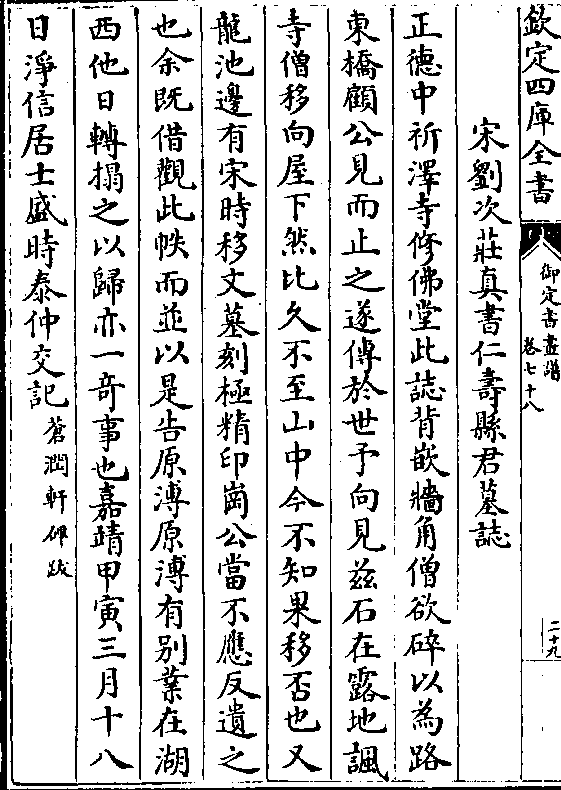 欽定四庫全書
御定書畫譜
卷七十八
二十九
宋劉次莊真書仁壽縣君墓誌
正德中祈澤寺修佛堂此誌背嵌牆角僧欲碎以為路
東橋顧公見而止之遂傳於世予向見兹石在露地諷
寺僧移向屋下然比久不至山中今不知果移否也又
龍池邊有宋時移文墓刻極精印崗公當不應反遺之
也余既借觀此帙而並以是告原溥原溥有别業在湖
西他日轉搨之以歸亦一奇事也嘉靖甲寅三月十八
日淨信居士盛時泰仲交記蒼潤軒碑跋